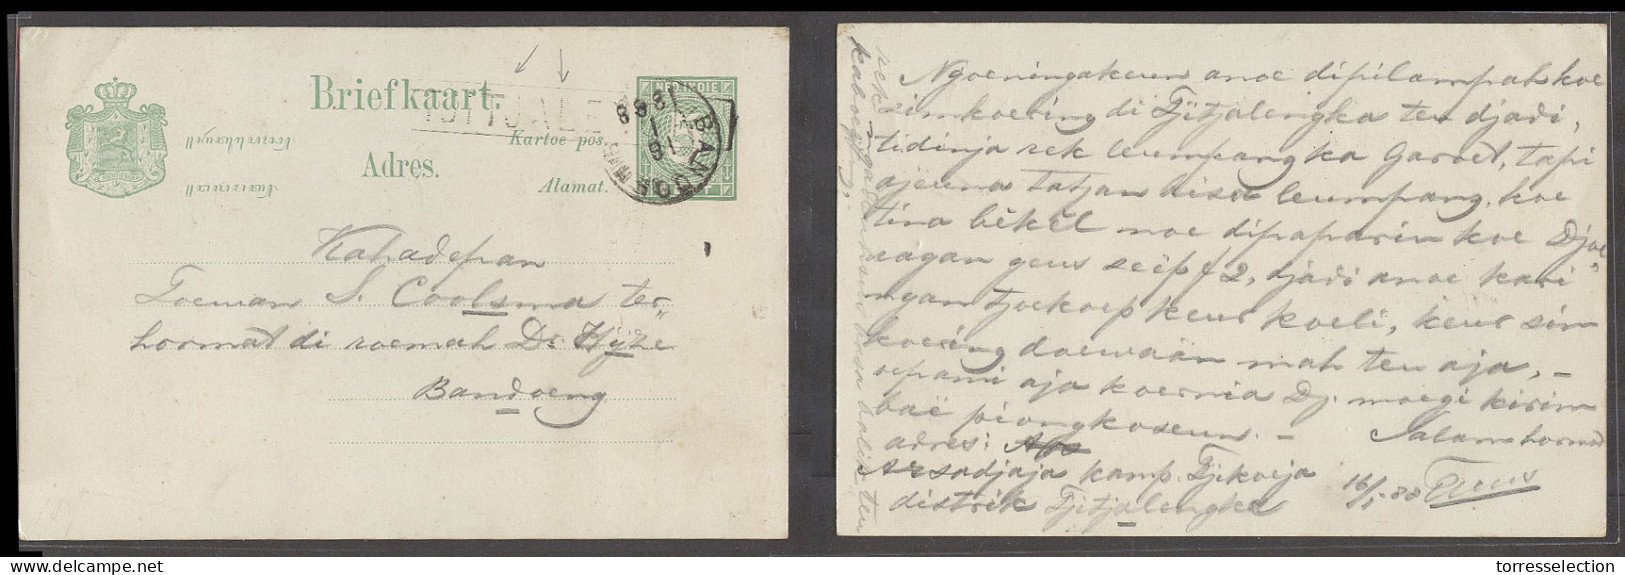 Briefkaart.
TJITJALE
Kartoe pos.
Adres.
Alamat.
NED. INDIE
BANDOENG
16
1
888
Kahadepan
Toewan S. Coolsma ter-
hormat di roemah Ds Hijze
Bandoeng
Ngoeningakeun anoe dipilampah koe
simkoering di Tjitjalengka teu djadi,
tidinja rek leumpangka Garoet, tapi
ajeuna tatjan bisa leumpang, koe
tina bĕkĕl noe dipaparin koe Djoe-
ragan geus seĕp f2, djadi anoe kari
ngan tjoekoep keur koeli, keur sim
koering doewaän mah teu aja,
oepami aja koernia Dj. moegi kirim
baë piongkoseun. -
adres: Salam hormat
Arsadjaja kamp. Tjikoeja
distrik Tjitjalengka
16/1-88
torresselection